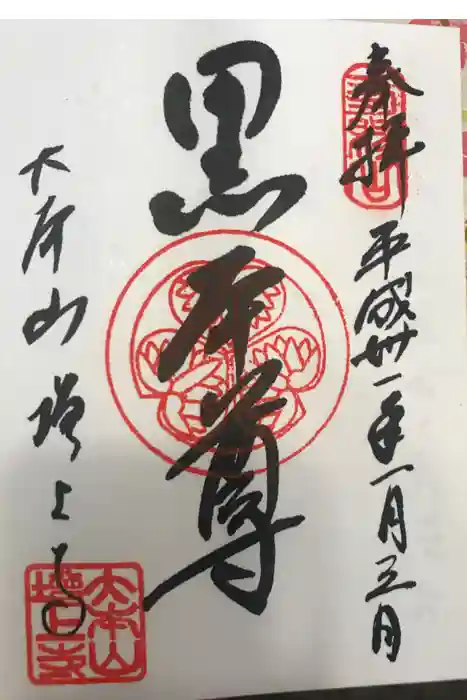 奉拝
平成卅一年一月三日
黒本尊
大本山増上寺
大本山
増上寺